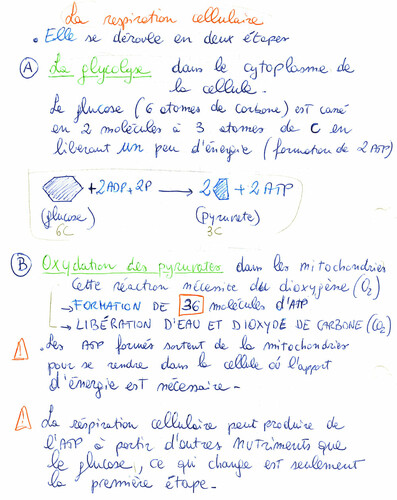 La respiration cellulaire
• Elle se déroule en deux étapes
A La glycolyse dans le cytoplasme de
la cellule.
Le glucose (6 atomes de carbone) est cané
en 2 molécules à 3 atomes de C en
libérant un peu d'énergie (formation de 2 ATP)
+ 2ADP + 2P → 2 + 2 ATP
(glucose) (pyruvate)
6C 3C
B Oxydation des pyruvates dans les mitochondries
Cette réaction nécessite du dioxygène (O2)
→ FORMATION DE 36 molécules d'ATP
→ LIBÉRATION D'EAU ET DIOXYDE DE CARBONE (CO2)
! • Les ATP formés sortent de la mitochondries
pour se rendre dans la cellule où l'apport
d'énergie est nécessaire -
! • La respiration cellulaire peut produire de
l'ATP à partir d'autres nutriments que
le glucose, ce qui change est seulement
la première étape -